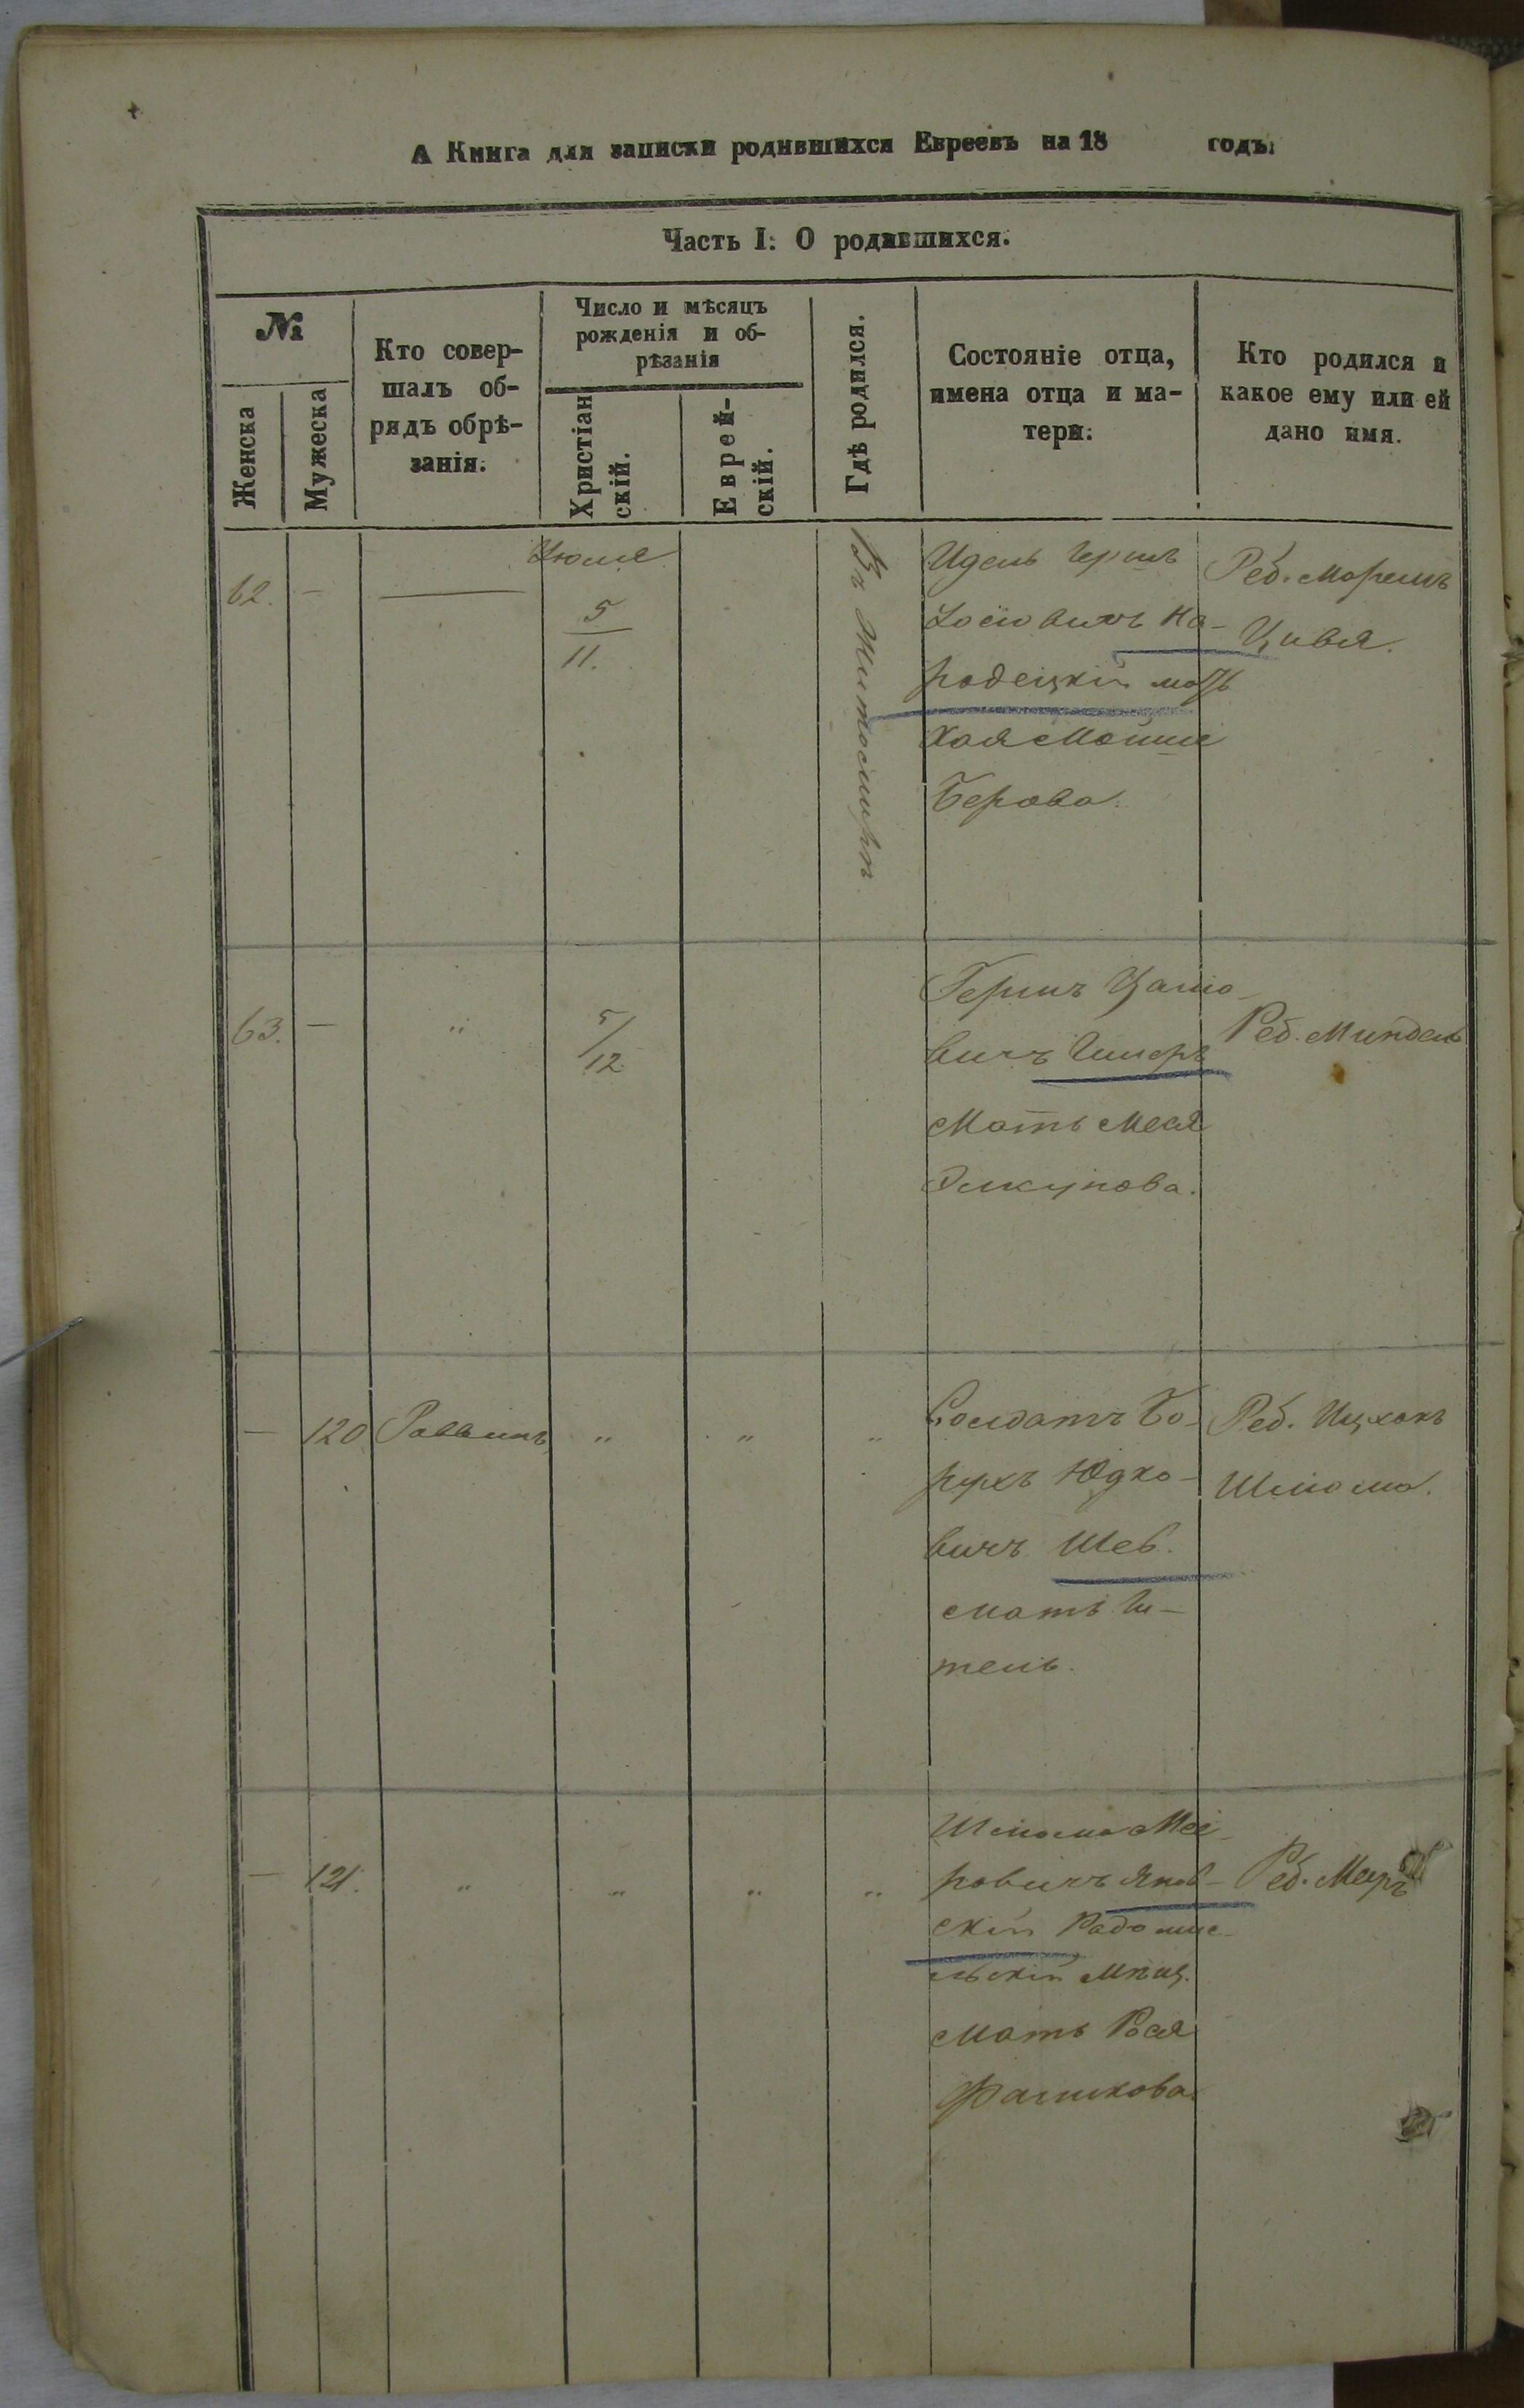 А Книга для записки родившихся Евреевъ на 18 годъ:
Часть I: О родившихся.
№
Женска
Мужеска
Кто совер-
шалъ об-
рядъ обрѣ-
занія:
Число и мѣсяцъ
рожденія и об-
рѣзанія
Христіан
скій.
Еврей-
скій.
Гдѣ родился.
Состояніе отца,
имена отца и ма-
тери:
Кто родился и
какое ему или ей
дано имя.
62.
—
Іюля
5
11.
Въ Житомирѣ
Идель Гершъ
Іосіовичъ На-
родецкій мать
Хая Мошие
Берова.
Реб.
Цивя.
63.
—
"
5/12
Гершъ
вичъ
Мать Мея
Реб. Миндель
—
120
Раввинъ
"
"
"
Солдатъ Бо-
рухъ Юдко-
вичъ Шеб.
мать Ги-
тель.
Реб. Ицхокъ
Шліома.
—
121.
"
"
"
"
Шліома Меі-
ровичъ Янов-
скій Радомыс-
льскій Мѣщ.
Мать Рося
Фаликова.
Реб. Меиръ